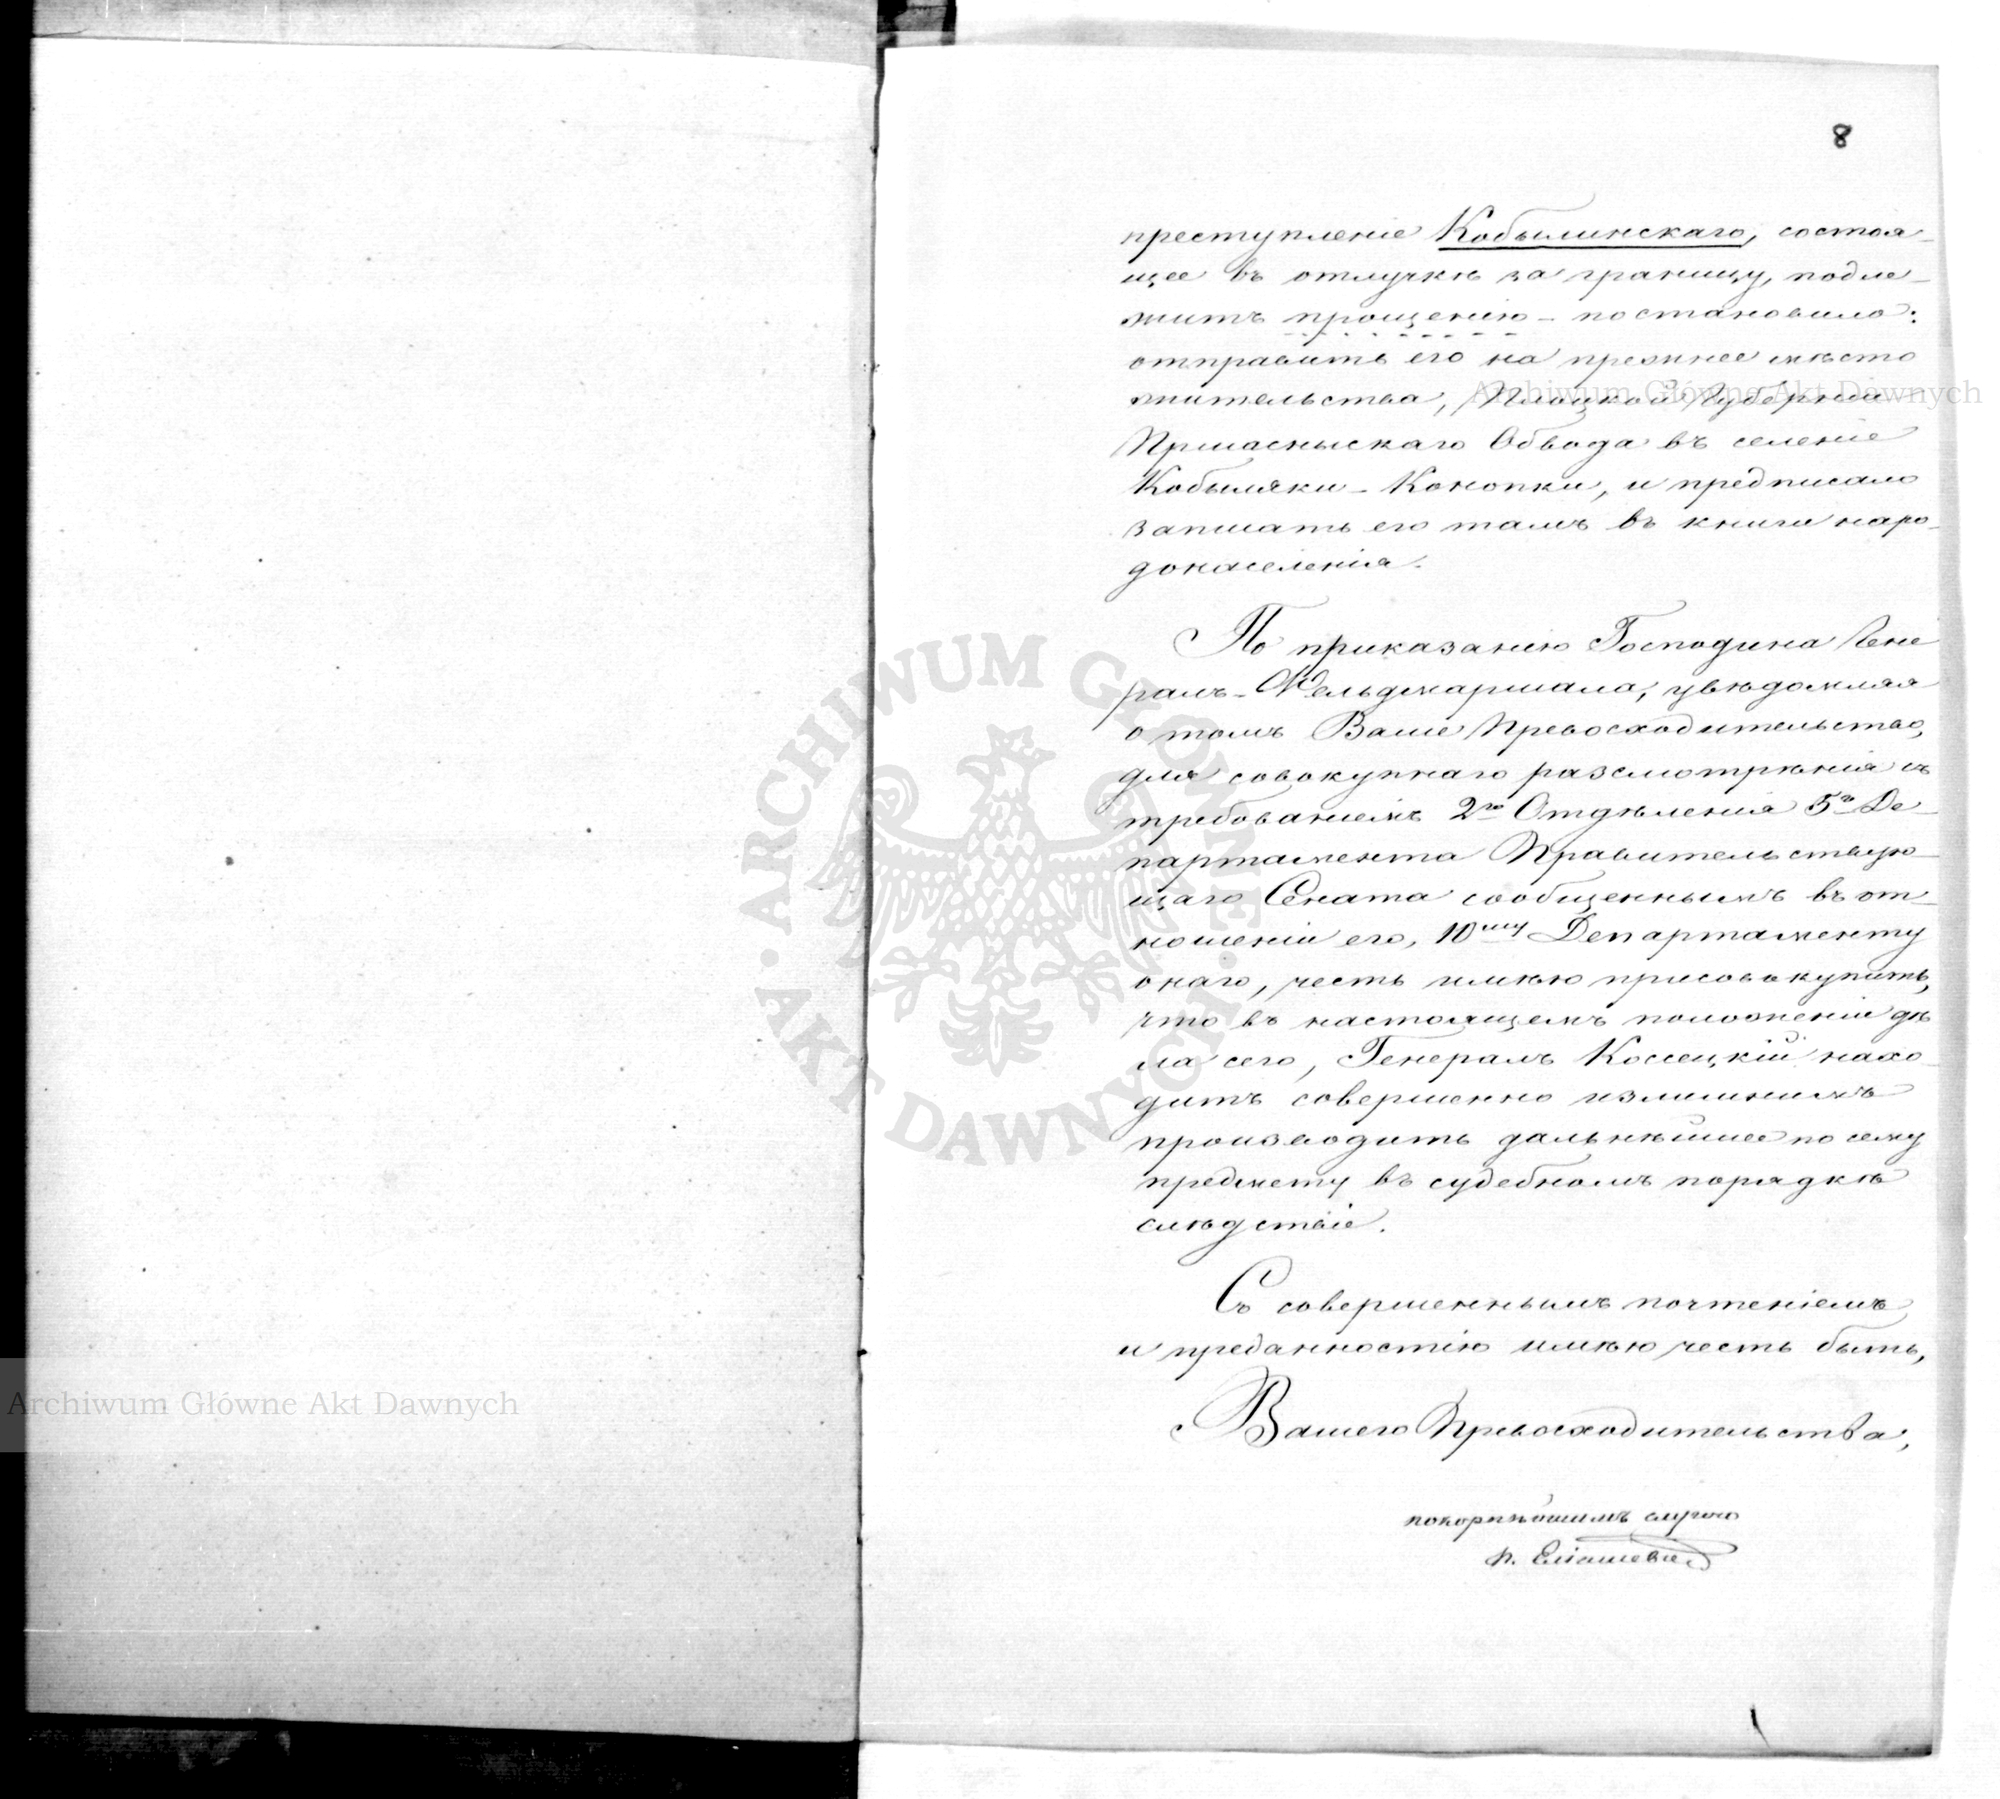 8
преступленіе Кобылинскаго, состоя-
щее въ отлучкѣ за границу, подле-
житъ прощенію - постановило:
отправить его на прежнее мѣсто
жительства, Плоцкой Губерніи
Пршаснысскаго Обвода въ селеніе
Кобыляки - Конопки, и предписало
записать его тамъ въ книги наро-
донаселенія.
По приказанію Господина Гене
ралъ-Фельдмаршала, увѣдомляя
о томъ Ваше Превосходительство,
для совокупнаго разсмотрѣнія съ
требованіемъ 2го Отдѣленія 5го Де-
партамента Правительствую-
щаго Сената сообщеннымъ въ от-
ношеніи его, 10му Департаменту
онаго, честь имѣю присовокупить,
что въ настоящемъ положеніи дѣ
ла сего, Генералъ Коссецкій нахо-
дитъ совершенно излишнимъ
производить дальнѣйшее по сему
предмету въ судебномъ порядкѣ
слѣдствіе.
Съ совершеннымъ почтеніемъ
и преданностію имѣю честь быть,
Вашего Превосходительства,
покорнѣйшимъ слугою
Archiwum Główne Akt Dawnych
Archiwum Główne Akt Dawnych
ARCHIWUM GŁÓWNE · AKT DAWNYCH ·